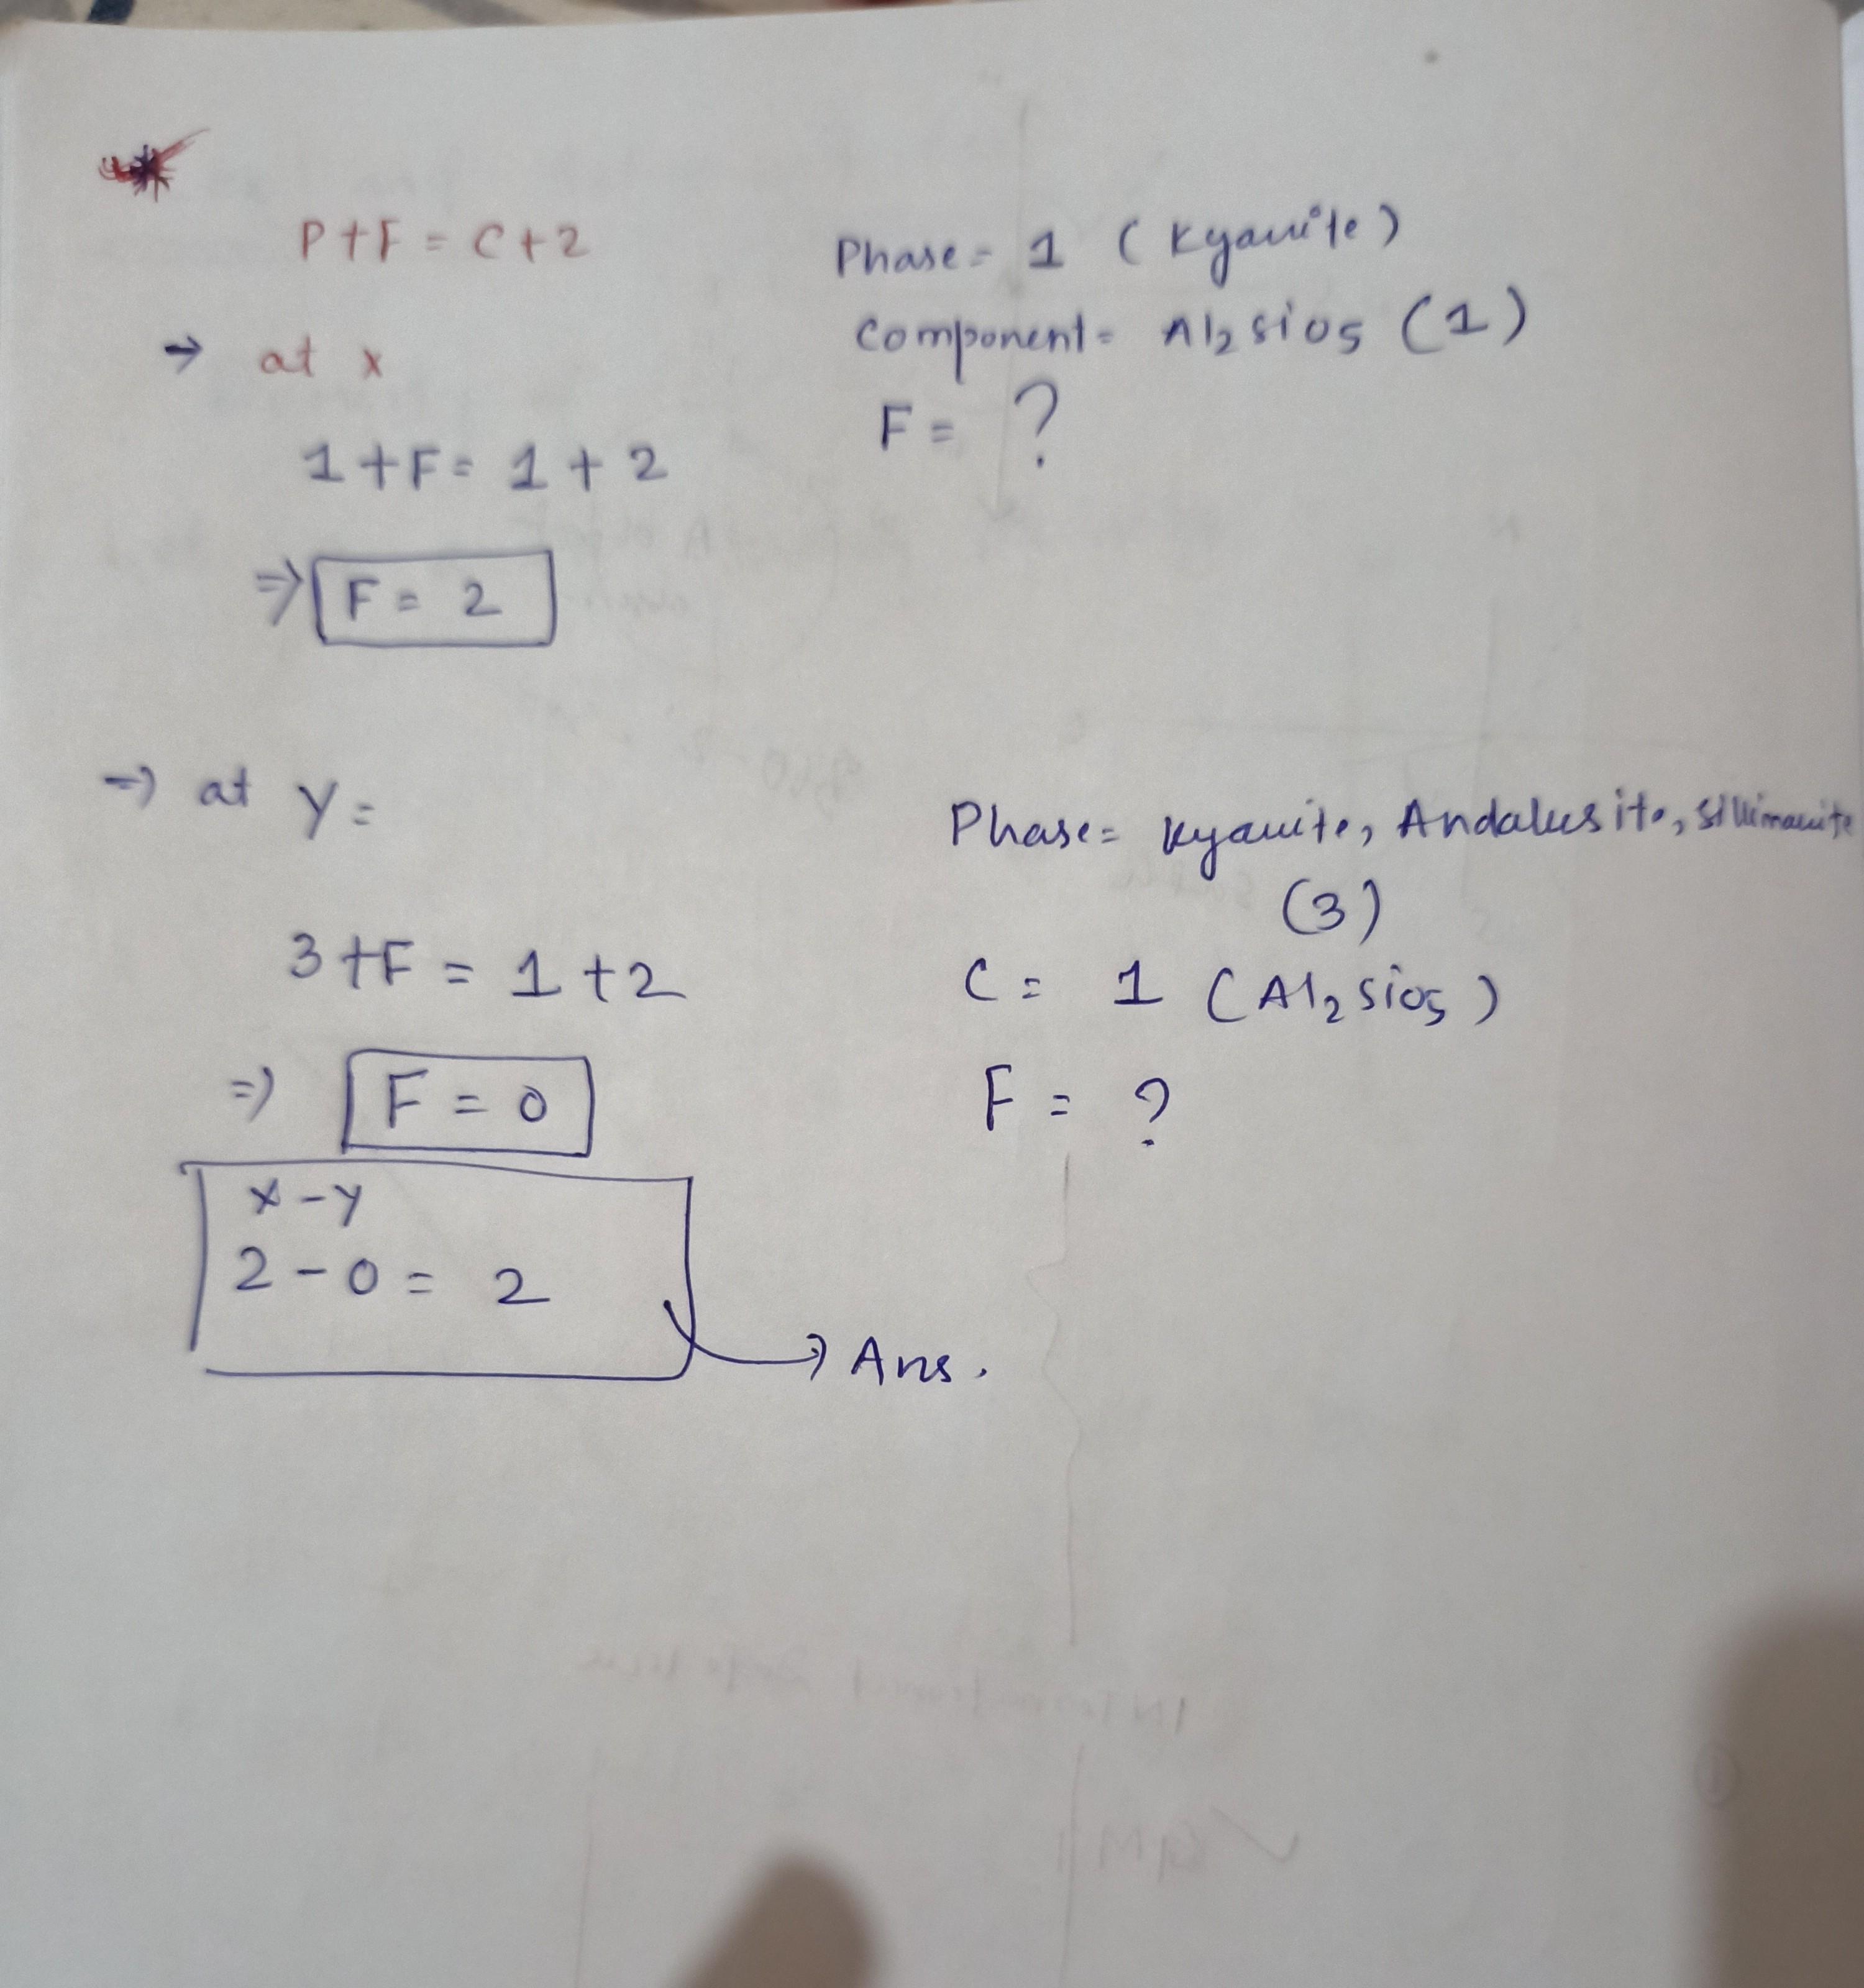 P+F = C+2
→ at x
1+F= 1+2
⇒ F= 2
Phase= 1 (Kyanite)
Component= Al2SiO5 (1)
F= ?
⇒ at Y=
3+F = 1+2
⇒ F = 0
Phase= Kyanite, Andalusite, Sillimanite
(3)
C= 1 (Al2SiO5)
F = ?
x-y
2-0= 2
→ Ans.